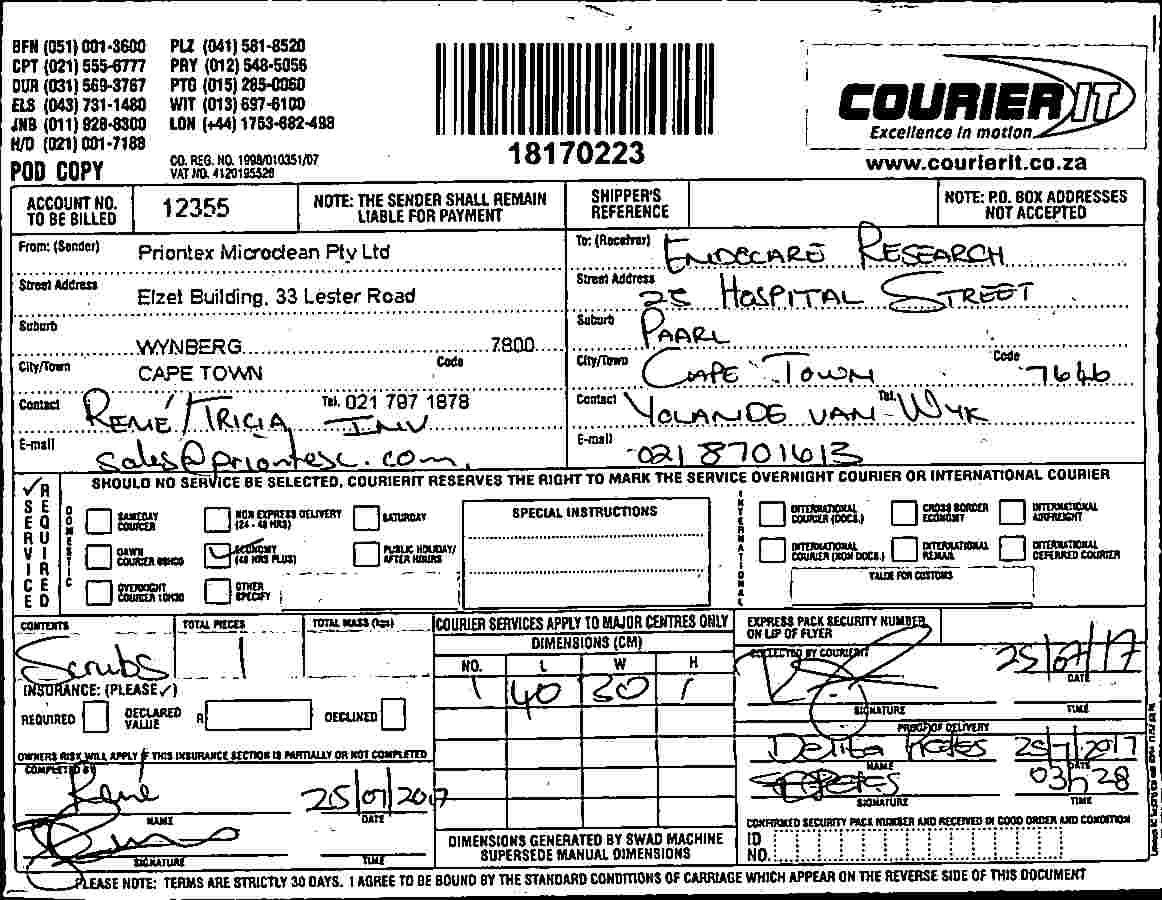 BFN (051) 001-3600 PLZ (041) 581-8520
CPT (021) 555-6777 PRY (012) 548-5056
DUR (031) 569-3767 PTG (015) 285-0060
ELS (043) 731-1480 WIT (013) 697-6100
JNB (011) 928-8300 LON (+44) 1753-682-493
H/O (021) 001-7188
POD COPY
CO. REG. NO. 1998/010351/07
VAT NO. 4120195526
18170223
COURIER IT
Excellence in motion
www.courierit.co.za
ACCOUNT NO. TO BE BILLED 12355
NOTE: THE SENDER SHALL REMAIN LIABLE FOR PAYMENT
SHIPPER'S REFERENCE
NOTE: P.O. BOX ADDRESSES NOT ACCEPTED
From: (Sender) Priontex Microclean Pty Ltd
Street Address Elzet Building, 33 Lester Road
Suburb WYNBERG 7800
City/Town CAPE TOWN Code
Contact RENÉ/TRICIA Tel. 021 797 1878
INV
E-mail sales@priontex.com
To: (Receiver) ENDOCARE RESEARCH
Street Address 25 HOSPITAL STREET
Suburb PAARL
City/Town CAPE TOWN Code 7646
Contact YOLANDE VAN WYK Tel.
E-mail 021 8701613
SHOULD NO SERVICE BE SELECTED, COURIERIT RESERVES THE RIGHT TO MARK THE SERVICE OVERNIGHT COURIER OR INTERNATIONAL COURIER
✓ SERVICE REQUIRED
DOMESTIC
SAMEDAY COURIER
NON EXPRESS DELIVERY (24 - 48 HRS)
SATURDAY
DAWN COURIER 08H00
✓ ECONOMY (48 HRS PLUS)
PUBLIC HOLIDAY/ AFTER HOURS
OVERNIGHT COURIER 10H30
OTHER SPECIFY
SPECIAL INSTRUCTIONS
INTERNATIONAL
INTERNATIONAL COURIER (DOCS.)
CROSS BORDER ECONOMY
INTERNATIONAL AIRFREIGHT
INTERNATIONAL COURIER (NON DOCS.)
INTERNATIONAL REMAIL
INTERNATIONAL DEFERRED COURIER
VALUE FOR CUSTOMS
CONTENTS Scrubs
TOTAL PIECES 1
TOTAL MASS (kgs)
INSURANCE: (PLEASE ✓)
REQUIRED
DECLARED VALUE R
DECLINED
OWNERS RISK WILL APPLY IF THIS INSURANCE SECTION IS PARTIALLY OR NOT COMPLETED
COMPLETED BY
René 25/07/2017
NAME DATE
SIGNATURE TIME
COURIER SERVICES APPLY TO MAJOR CENTRES ONLY
DIMENSIONS (CM)
NO. L W H
1 40 30 1
DIMENSIONS GENERATED BY SWAD MACHINE SUPERSEDE MANUAL DIMENSIONS
EXPRESS PACK SECURITY NUMBER ON LIP OF FLYER
COLLECTED BY COURIERIT
25/07/17
DATE
SIGNATURE TIME
PROOF OF DELIVERY
25/7/2017
NAME DATE
03h28
SIGNATURE TIME
CONFIRMED SECURITY PACK NUMBER AND RECEIVED IN GOOD ORDER AND CONDITION
ID NO.
PLEASE NOTE: TERMS ARE STRICTLY 30 DAYS. I AGREE TO BE BOUND BY THE STANDARD CONDITIONS OF CARRIAGE WHICH APPEAR ON THE REVERSE SIDE OF THIS DOCUMENT